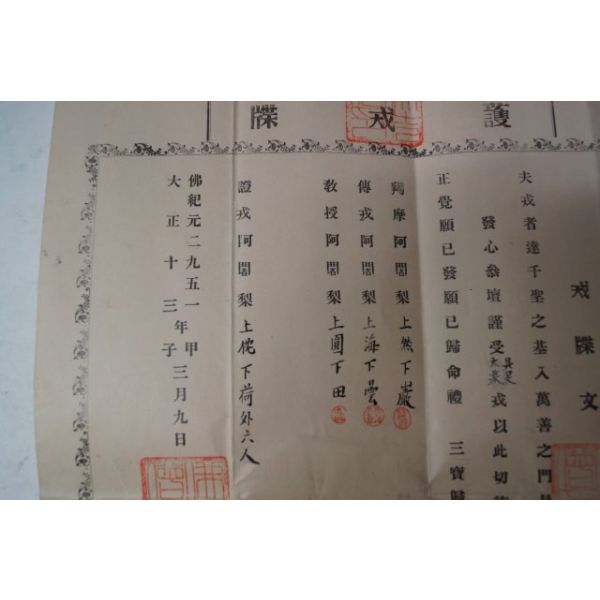 護戒牒
戒牒文
夫戒者達千聖之基入萬善之門
發心叅壇謹受具足大乘戒以此切
正覺願已發願已歸命禮 三寶歸
羯摩阿闍梨上然下巖
傳戒阿闍梨上海下曇
敎授阿闍梨上圓下田
證戒阿闍梨上侘下荷外六人
佛紀元二九五一年甲子三月九日
大正十三